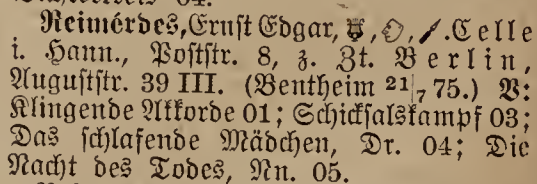 Reimérdes, Ernst Edgar, Celle
i. Hann., Poststr. 8, z. Zt. Berlin,
Auguststr. 39 III. (Bentheim 21/7 75.) V:
Klingende Akkorde 01; Schicksalskampf 03;
Das schlafende Mädchen, Dr. 04; Die
Nacht des Todes, Nn. 05.